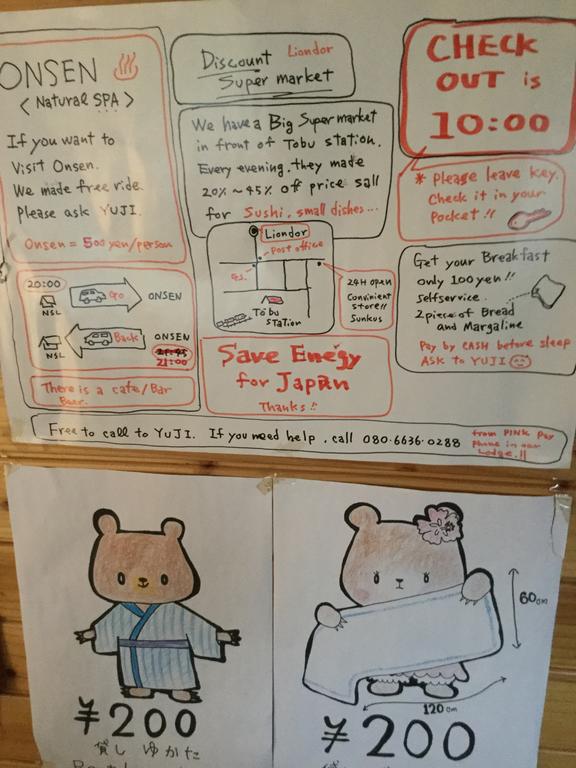 ONSEN
< Natural SPA >
If you want to
Visit Onsen.
We made free ride.
Please ask YUJI.
Onsen = 500 yen/person
20:00
Go
ONSEN
NSL
Back
ONSEN
NSL
21:45
21:00
There is a cafe/Bar
Beer.
Discount Liondor
Super market
We have a Big Super market
in front of Tobu station.
Every evening. they made
20% ~ 45% of price sall
for Sushi, small dishes...
Liondor
Post office
Tobu
station
24H open
Convinient
store!!
Sunkus
Save Enegy
for Japan
Thanks!!
CHECK
OUT is
10:00
* Please leave key.
Check it in your
pocket!!
Get your Breakfast
only 100 yen!!
selfservice.
2 piece of Bread
and Margaline
Pay by CASH before sleep
Ask to YUJI
Free to call to YUJI. If you need help, call 080-6636-0288
from PINK Pay
phone in our
Lodge.!!
¥200
貸し ゆかた
60cm
120cm
¥200